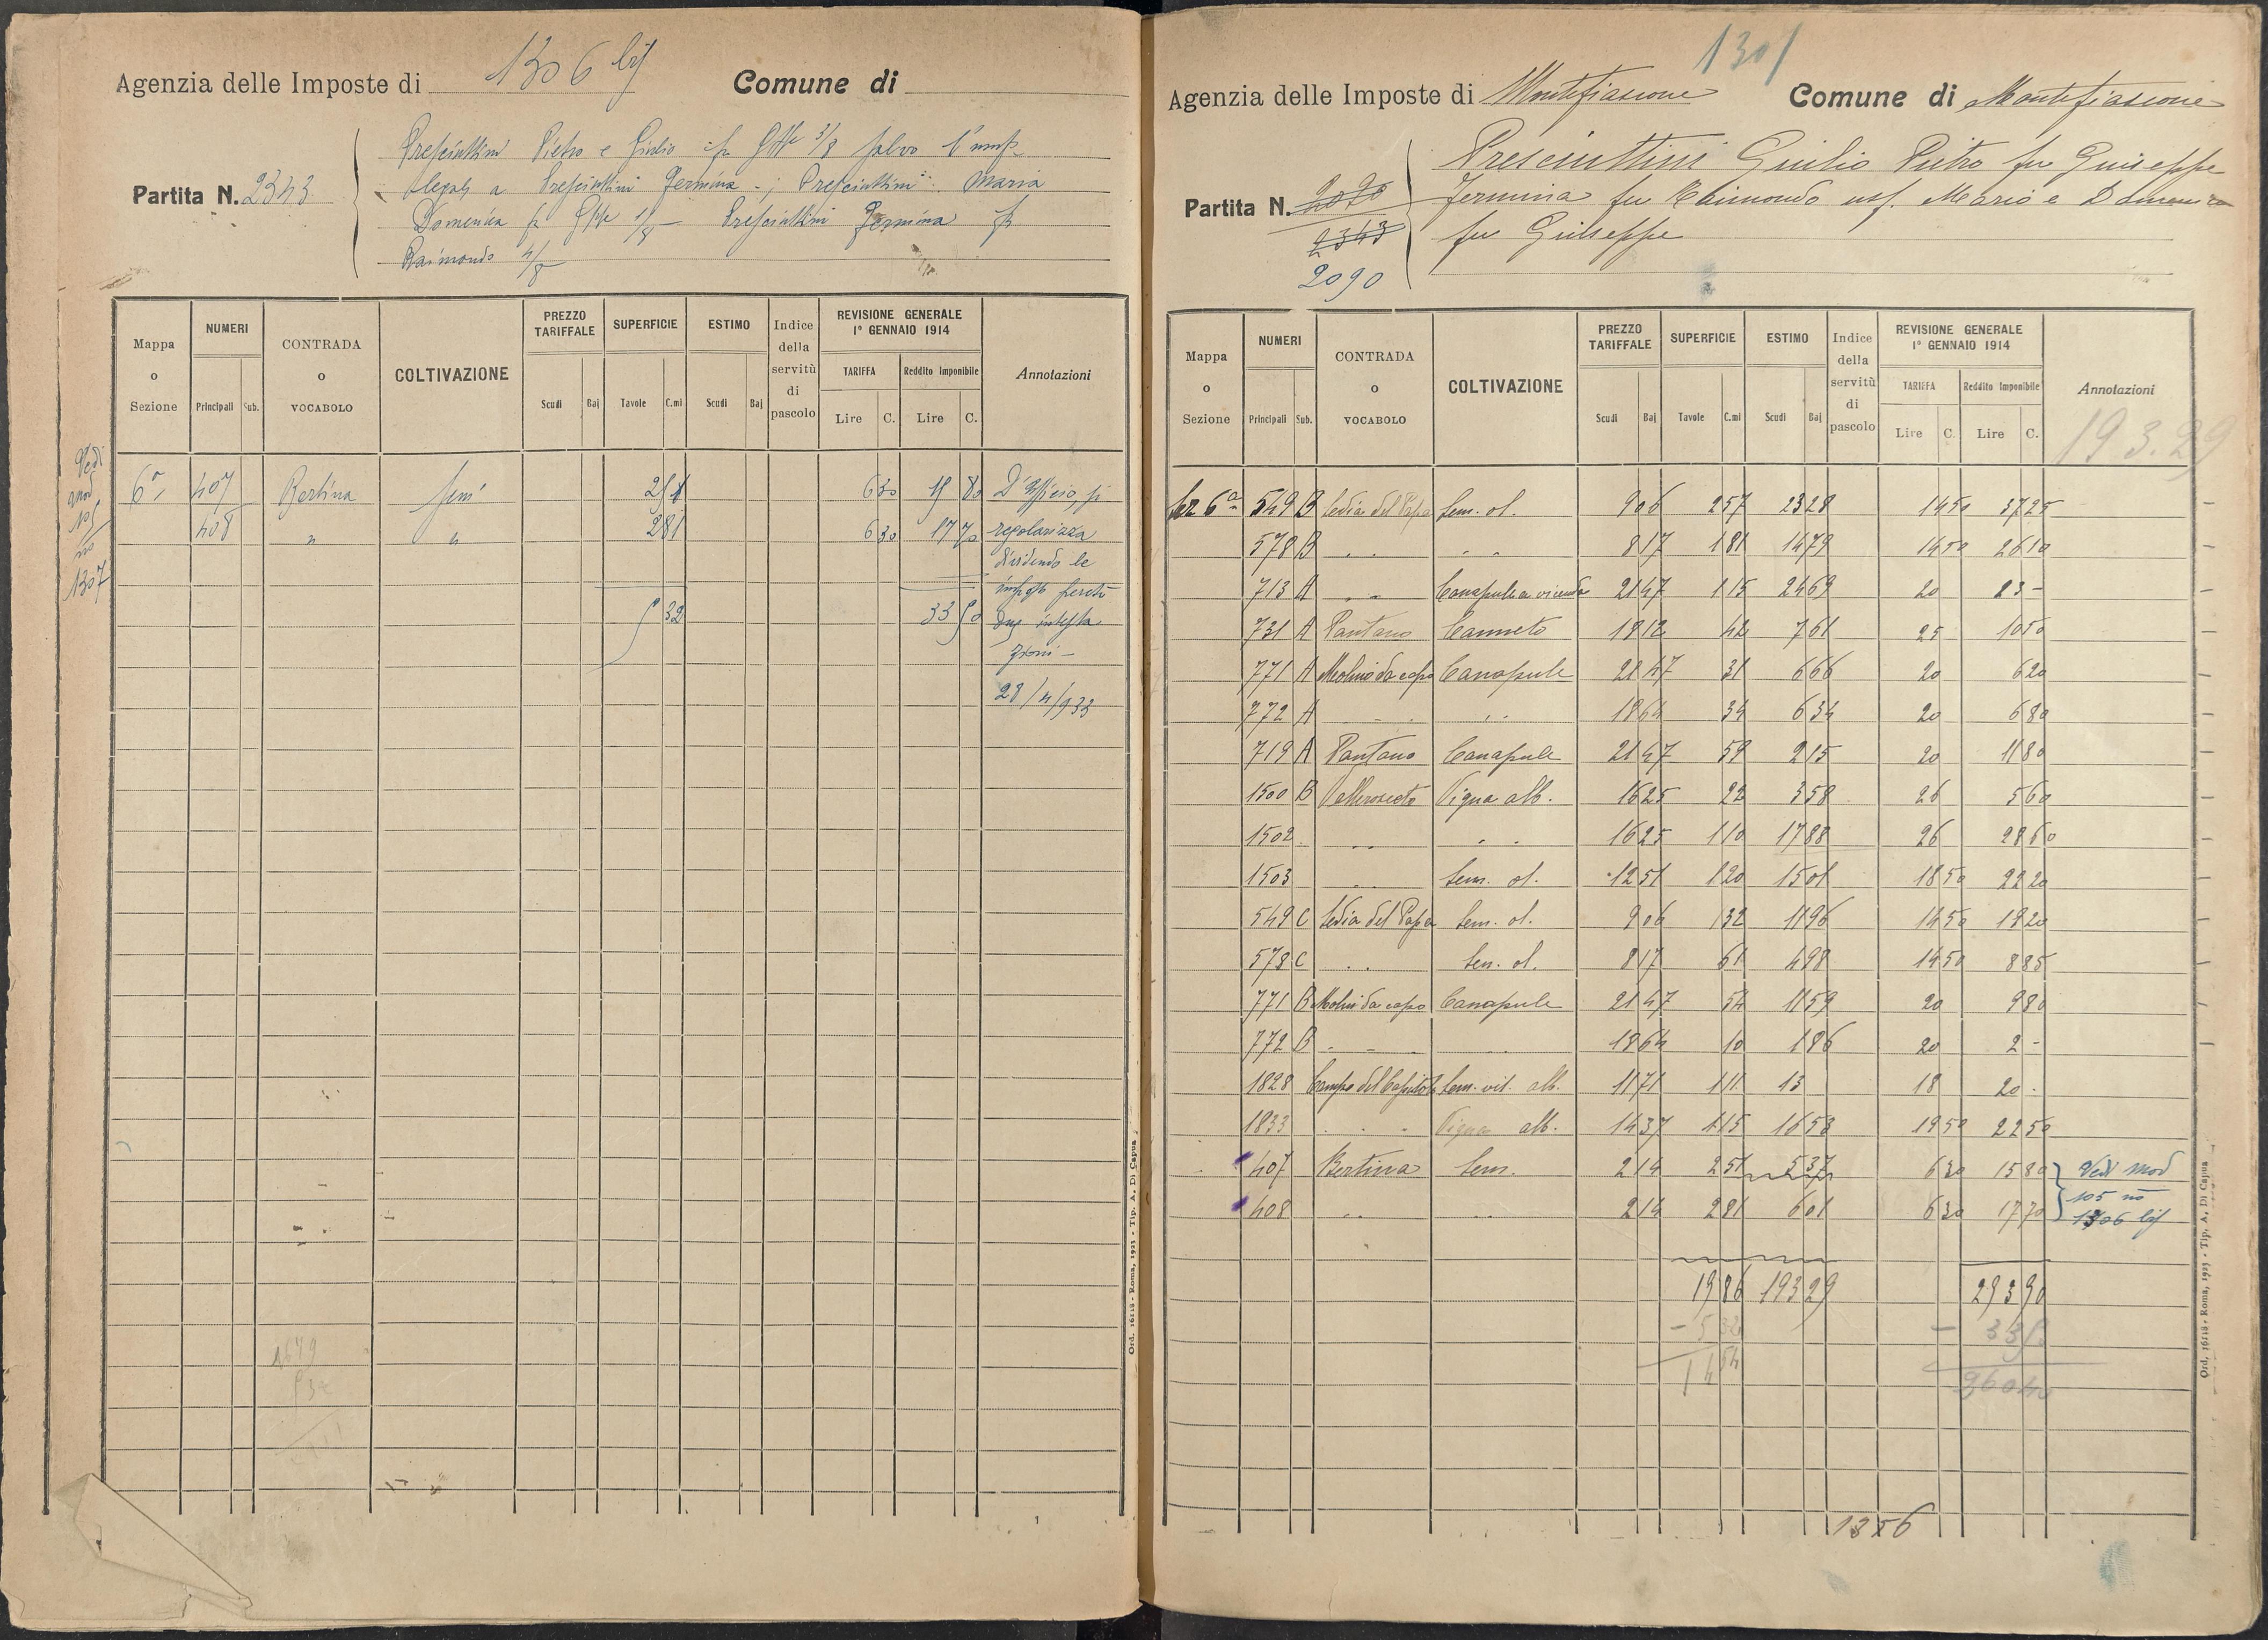 1306 bis
Agenzia delle Imposte di
Comune di
Partita N. 2343
Presciuttini Pietro e Giulio fu Gppe 3/8 salvo l'usuf.
legale a Presciuttini Fermina - ; Presciuttini Maria
Domenica fu Gppe 1/8 - Presciuttini Fermina fu
Raimondo 4/8
Mappa o Sezione
NUMERI
Principali Sub.
CONTRADA o VOCABOLO
COLTIVAZIONE
PREZZO TARIFFALE
Scudi Baj
SUPERFICIE
Tavole C.mi
ESTIMO
Scudi Baj
Indice della servitù di pascolo
REVISIONE GENERALE 1° GENNAIO 1914
TARIFFA Reddito Imponibile
Lire C. Lire C.
Annotazioni
Vedi
mod
105
no
1307
6a 407 Bertina sem. 251 630 15 80 D'Ufficio, si
408 " " 281 630 17 70 regolarizza
dividendo le
imposte perchè
5 32 33 50 due intesta
zioni -
28/4/933
1679
532
Ord. 16518 - Roma, 1923 - Tip. A. Di Capua
1301
Agenzia delle Imposte di Montefiascone Comune di Montefiascone
Partita N. 2070
2343
2090
Presciuttini Giulio Pietro fu Giuseppe
Fermina fu Raimondo usf. Maria e Domenica
fu Giuseppe
Mappa o Sezione
NUMERI
Principali Sub.
CONTRADA o VOCABOLO
COLTIVAZIONE
PREZZO TARIFFALE
Scudi Baj
SUPERFICIE
Tavole C.mi
ESTIMO
Scudi Baj
Indice della servitù di pascolo
REVISIONE GENERALE 1° GENNAIO 1914
TARIFFA Reddito Imponibile
Lire C. Lire C.
Annotazioni
19.3.29
Sez 6a 549 B Sedia del Papa Sem. ol. 9 06 2 57 23 28 14 50 37 25
578 B " " " " 8 17 1 81 14 79 14 50 26 10
713 A " " Canapule a vicenda 21 47 1 15 24 69 20 23 -
731 A Pantano Canneto 18 12 42 7 61 25 10 50
771 A Molino da capo Canapule 21 47 31 6 66 20 6 20
772 A " " " " 18 64 34 6 34 20 6 80
719 A Pantano Canapule 21 47 59 2 15 20 11 80
1500 B Vallerosecta Vigna alb. 16 25 22 3 58 26 5 60
1502 " " " " 16 25 1 10 17 88 26 28 60
1503 " " Sem. ol. 12 51 1 20 15 01 18 50 22 20
549 C Sedia del Papa Sem. ol. 9 06 1 32 11 96 14 50 18 20
578 C " " Sem. ol. 8 17 61 4 98 14 50 8 85
771 B Molino da capo Canapule 21 47 54 11 59 20 9 80
772 B " " " " 18 64 10 1 86 20 2 -
1828 Campo del Capitolo Sem. vit. alb. 11 71 1 11 13 18 20 -
1833 " " Vigna alb. 14 37 1 15 16 53 19 50 22 50
407 Bertina Sem. 2 14 2 51 5 37 6 30 15 80 Vedi mod
408 " " " " 2 14 2 81 6 01 6 30 17 70 105 no
1306 bis
19 86 193 29 293 90
- 5 32 - 33 5
14 54 260 40
1356
Ord. 16518 - Roma, 1923 - Tip. A. Di Capua